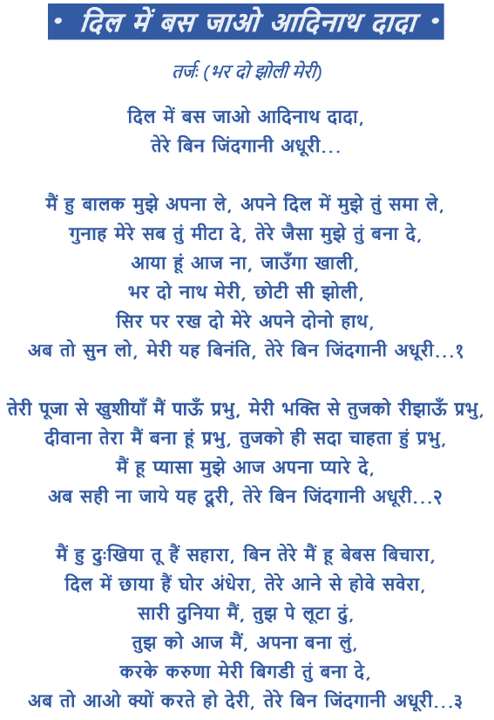 • दिल में बस जाओ आदिनाथ दादा •
तर्जः (भर दो झोली मेरी)
दिल में बस जाओ आदिनाथ दादा,
तेरे बिन जिंदगानी अधूरी...
मैं हु बालक मुझे अपना ले, अपने दिल में मुझे तुं समा ले,
गुनाह मेरे सब तुं मीटा दे, तेरे जैसा मुझे तुं बना दे,
आया हूं आज ना, जाउँगा खाली,
भर दो नाथ मेरी, छोटी सी झोली,
सिर पर रख दो मेरे अपने दोनो हाथ,
अब तो सुन लो, मेरी यह बिनंति, तेरे बिन जिंदगानी अधूरी...१
तेरी पूजा से खुशीयाँ मैं पाऊँ प्रभु, मेरी भक्ति से तुजको रीझाऊँ प्रभु,
दीवाना तेरा मैं बना हूं प्रभु, तुजको ही सदा चाहता हुं प्रभु,
मैं हू प्यासा मुझे आज अपना प्यारे दे,
अब सही ना जाये यह दूरी, तेरे बिन जिंदगानी अधूरी...२
मैं हु दुःखिया तू हैं सहारा, बिन तेरे मैं हू बेबस बिचारा,
दिल में छाया हैं घोर अंधेरा, तेरे आने से होवे सवेरा,
सारी दुनिया मैं, तुझ पे लूटा दुं,
तुझ को आज मैं, अपना बना लुं,
करके करुणा मेरी बिगडी तुं बना दे,
अब तो आओ क्यों करते हो देरी, तेरे बिन जिंदगानी अधूरी...३